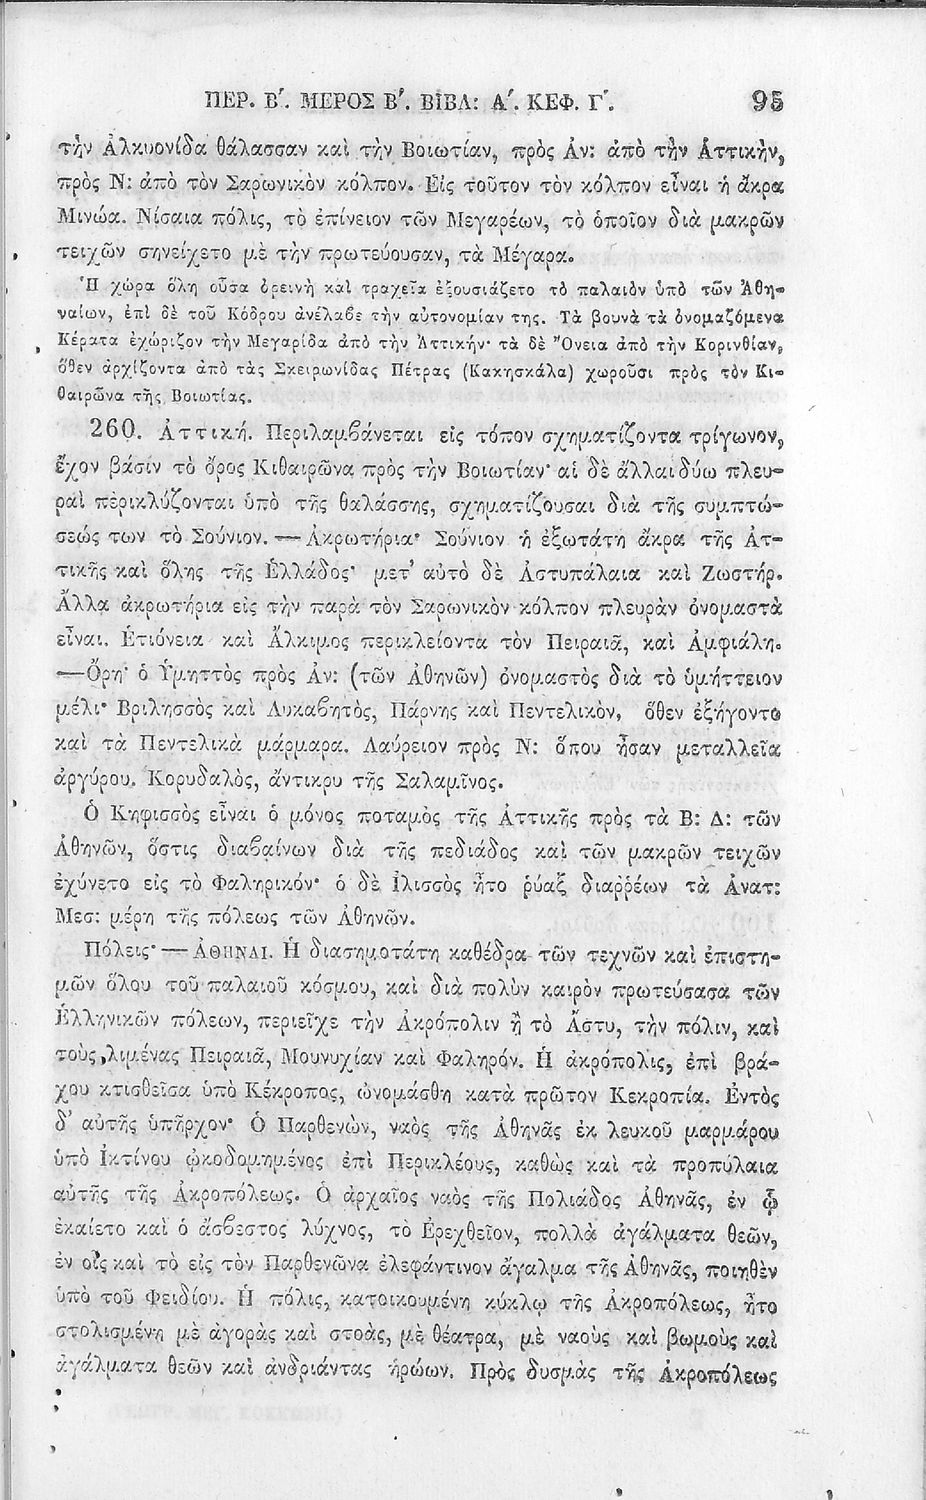 ΠΕΡ. Β΄. ΜΕΡΟΣ Β΄. ΒΙΒΛ: Α΄. ΚΕΦ. Γ΄. 95
τὴν Ἀλκυονίδα θάλασσαν καὶ τὴν Βοιωτίαν, πρὸς Ἀν: ἀπὸ τὴν Ἀττικὴν,
πρὸς Ν: ἀπὸ τὸν Σαρωνικὸν κόλπον. Εἰς τοῦτον τὸν κόλπον εἶναι ἡ ἄκρα
Μινώα. Νίσαια πόλις, τὸ ἐπίνειον τῶν Μεγαρέων, τὸ ὁποῖον διὰ μακρῶν
τειχῶν σηνείχετο μὲ τὴν πρωτεύουσαν, τὰ Μέγαρα.
Ἡ χώρα ὅλη οὖσα ὀρεινὴ καὶ τραχεῖα ἐξουσιάζετο τὸ παλαιὸν ὑπὸ τῶν Ἀθη-
ναίων, ἐπὶ δὲ τοῦ Κόδρου ἀνέλαβε τὴν αὐτονομίαν της. Τὰ βουνὰ τὰ ὀνομαζόμενα
Κέρατα ἐχώριζον τὴν Μεγαρίδα ἀπὸ τὴν Ἀττικήν· τὰ δὲ Ὄνεια ἀπὸ τὴν Κορινθίαν,
ὅθεν ἀρχίζοντα ἀπὸ τὰς Σκειρωνίδας Πέτρας (Κακησκάλα) χωροῦσι πρὸς τὸν Κι-
θαιρῶνα τῆς Βοιωτίας.
260. Ἀττική. Περιλαμβάνεται εἰς τόπον σχηματίζοντα τρίγωνον,
ἔχον βάσιν τὸ ὄρος Κιθαιρῶνα πρὸς τὴν Βοιωτίαν· αἱ δὲ ἄλλαι δύω πλευ-
ραὶ περικλύζονται ὑπὸ τῆς θαλάσσης, σχηματίζουσαι διὰ τῆς συμπτώ-
σεώς των τὸ Σούνιον. — Ἀκρωτήρια· Σούνιον ἡ ἐξωτάτη ἄκρα τῆς Ἀτ-
τικῆς καὶ ὅλης τῆς Ἑλλάδος· μετ' αὐτὸ δὲ Ἀστυπάλαια καὶ Ζωστήρ.
Ἄλλα ἀκρωτήρια εἰς τὴν παρὰ τὸν Σαρωνικὸν κόλπον πλευρὰν ὀνομαστὰ
εἶναι. Ἑτιόνεια καὶ Ἄλκιμος περικλείοντα τὸν Πειραιᾶ, καὶ Ἀμφιάλη.
—Ὄρη· ὁ Ὑμηττὸς πρὸς Ἀν: (τῶν Ἀθηνῶν) ὀνομαστὸς διὰ τὸ ὑμήττειον
μέλι· Βριλησσὸς καὶ Λυκαβητὸς, Πάρνης καὶ Πεντελικὸν, ὅθεν ἐξήγοντο
καὶ τὰ Πεντελικὰ μάρμαρα. Λαύρειον πρὸς Ν: ὅπου ἦσαν μεταλλεῖα
ἀργύρου. Κορυδαλὸς, ἄντικρυ τῆς Σαλαμῖνος.
Ὁ Κηφισσὸς εἶναι ὁ μόνος ποταμὸς τῆς Ἀττικῆς πρὸς τὰ Β: Δ: τῶν
Ἀθηνῶν, ὅστις διαβαίνων διὰ τῆς πεδιάδος καὶ τῶν μακρῶν τειχῶν
ἐχύνετο εἰς τὸ Φαληρικόν· ὁ δὲ Ἰλισσὸς ἦτο ῥύαξ διαῤῥέων τὰ Ἀνατ:
Μεσ: μέρη τῆς πόλεως τῶν Ἀθηνῶν.
Πόλεις· — ΑΘΗΝΑΙ. Ἡ διασημοτάτη καθέδρα τῶν τεχνῶν καὶ ἐπιστη-
μῶν ὅλου τοῦ παλαιοῦ κόσμου, καὶ διὰ πολὺν καιρὸν πρωτεύσασα τῶν
Ἑλληνικῶν πόλεων, περιεῖχε τὴν Ἀκρόπολιν ἢ τὸ Ἄστυ, τὴν πόλιν, καὶ
τοὺς λιμένας Πειραιᾶ, Μουνυχίαν καὶ Φαληρόν. Ἡ ἀκρόπολις, ἐπὶ βρά-
χου κτισθεῖσα ὑπὸ Κέκροπος, ὠνομάσθη κατὰ πρῶτον Κεκροπία. Ἐντὸς
δ' αὐτῆς ὑπῆρχον· Ὁ Παρθενὼν, ναὸς τῆς Ἀθηνᾶς ἐκ λευκοῦ μαρμάρου
ὑπὸ Ἰκτίνου ᾠκοδομημένος ἐπὶ Περικλέους, καθὼς καὶ τὰ προπύλαια
αὐτῆς τῆς Ἀκροπόλεως. Ὁ ἀρχαῖος ναὸς τῆς Πολιάδος Ἀθηνᾶς, ἐν ᾧ
ἐκαίετο καὶ ὁ ἄσβεστος λύχνος, τὸ Ἐρεχθεῖον, πολλὰ ἀγάλματα θεῶν,
ἐν οἷς καὶ τὸ εἰς τὸν Παρθενῶνα ἐλεφάντινον ἄγαλμα τῆς Ἀθηνᾶς, ποιηθὲν
ὑπὸ τοῦ Φειδίου. Ἡ πόλις, κατοικουμένη κύκλῳ τῆς Ἀκροπόλεως, ἦτο
στολισμένη μὲ ἀγορὰς καὶ στοὰς, μὲ θέατρα, μὲ ναοὺς καὶ βωμοὺς καὶ
ἀγάλματα θεῶν καὶ ἀνδριάντας ἡρώων. Πρὸς δυσμὰς τῆς Ἀκροπόλεως